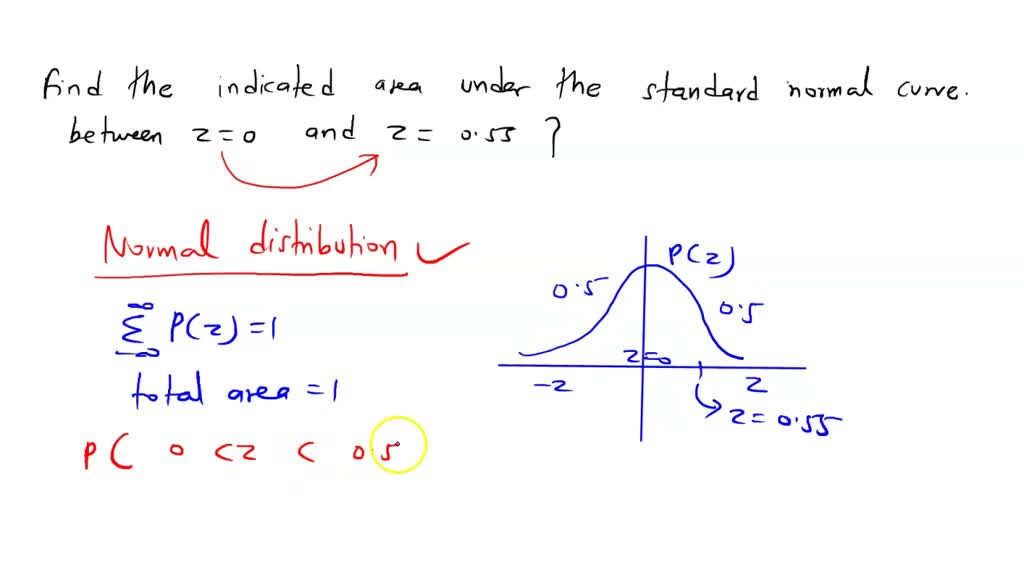 Find the indicated area under the standard normal curve.
between z=0 and z= 0.55 ?
Normal distribution ✓
∞
Σ P(z)=1
-∞
total area =1
P( 0 <z < 0.5
P(z)
0.5
0.5
z=0
-z
z
z= 0.55